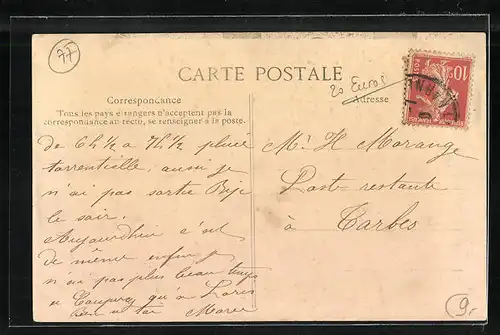 77
CARTE POSTALE
20 Euros
Correspondance
Adresse
Tous les pays étrangers n'acceptent pas la
correspondance au recto, se renseigner à la poste.
10
POSTES
de 6h ½ à 7h ½ pluie
torrentielle, aussi je
n'ai pas sortie
le soir.
Aujourdhui c'est
de même enfin je
n'ai pas plus beau temps
a qu'à
bien à toi
Mr H Morange
Poste restante
à Tarbes
9.-